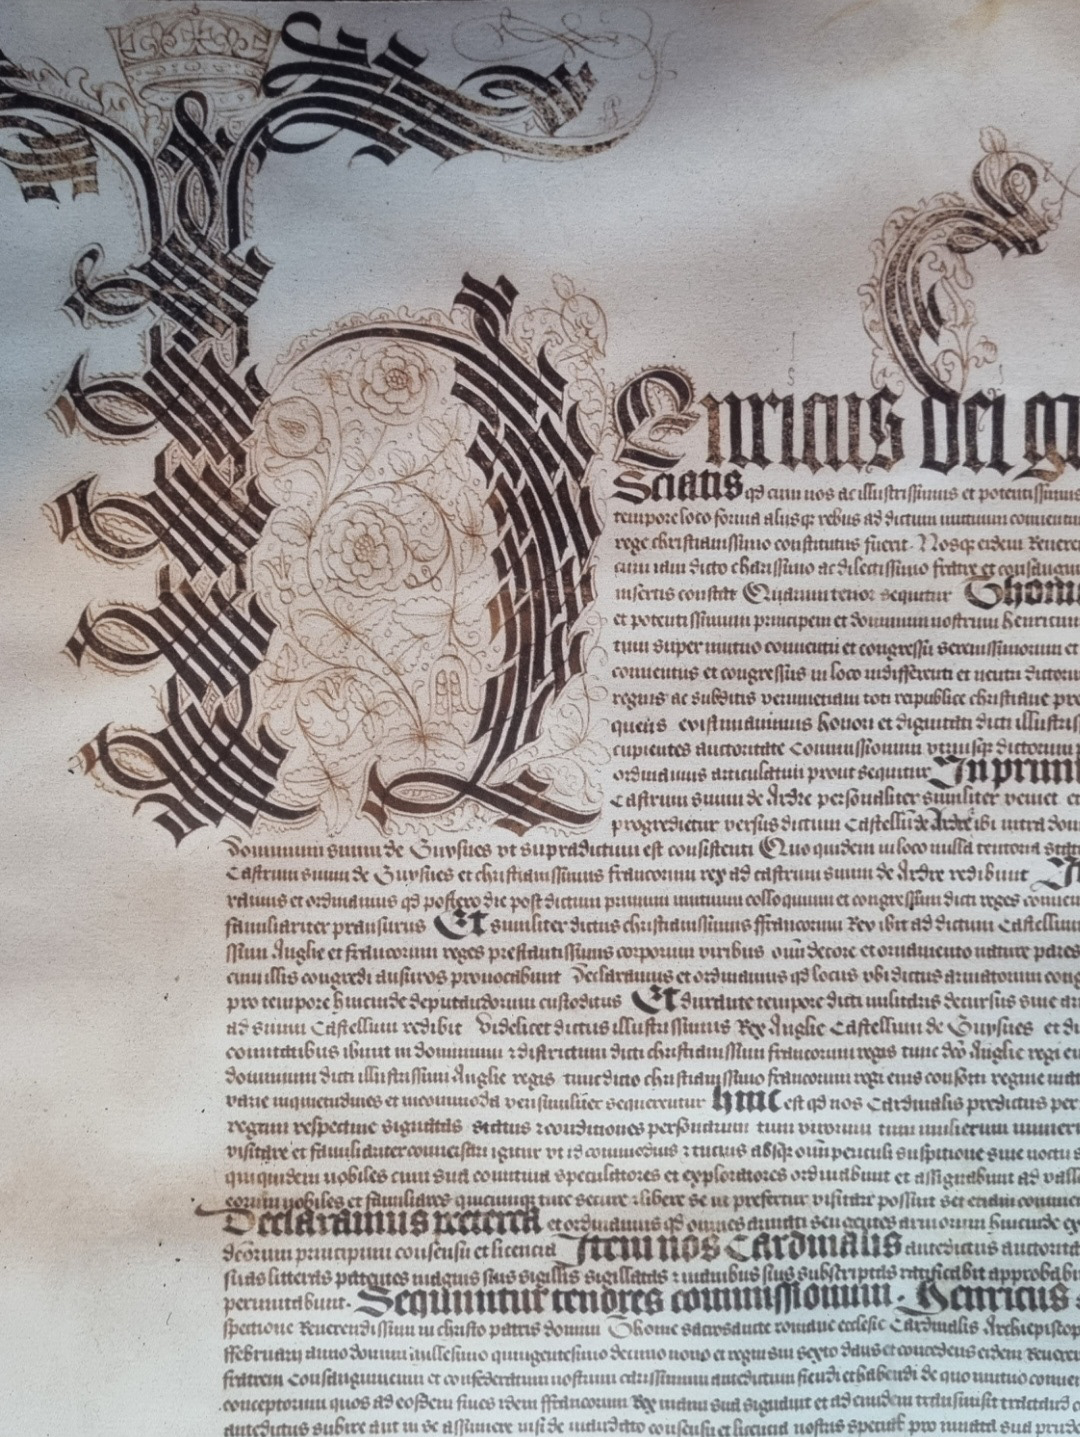 Henricus dei gr
Sciatis qd cum nos ac illustrissimus et potentissimus
tempore loco forma aliisqz rebus ad dictum mutuum conventu
rege christianissimo constitutus fuerit. Nosqz eidem Reveren
cum iam dicto charissimo ac dilectissimo fratre et consangui
insertis constat Quarum tenor sequitur Thom
et potentissimum principem et dominum nostrum henricum
tum super mutuo conventu et congressu serenissimorum et
conventus et congressus in loco indifferenti et neutri dictoru
regnis ac subditis verumetiam toti reipublice christiane pro
existimavimus honori et dignitati dicti illustris
cupientes auctoritate Commissionum utriusqz dictorum p
ordinamus articulatim prout sequitur Inprimi
Castrum suum de Ardre personaliter similiter veniet et
progredietur versus dictum Castellum de Ardre ibi intra dom
dominium suum de Guysnes ut supradictum est consistenti Quo quidem in loco nulla tentoria stat
Castrum suum de Guysnes et christianissimus francorum rex ad castrum suum de Ardre redibunt It
ramus et ordinamus qd postero die post dictum primum mutuum colloquium et congressum dicti reges conven
familiariter pransurus Et similiter dictus christianissimus ffrancorum Rex ibit ad dictum Castellum
ssimi Anglie et francorum reges prestantissimis corporum viribus omni decore et ornamento nature pares
cum illis congredi ausuros provocabunt Declaramus et ordinamus qd locus ubi dictus armatorum cong
pro tempore hincinde deputandorum custoditus Et durante tempore dicti militaris decursus sive ar
ad suum Castellum redibit Videlicet dictus illustrissimus Rex Anglie Castellum de Guysnes et di
comitatibus ibunt in dominium z districtum dicti christianissimi francorum regis tunc dco Anglie regi eiu
dominium dicti illustrissimi Anglie regis tunc dicto christianissimo francorum regi eius consorti regine mat
varie inquietudines et incommoda verisimiliter sequerentur hinc est qd nos Cardinalis predictus per
regum respective dignitas status z conditiones personarum tum virorum tum mulierum numeri
visitare et familiariter conversari igitur ut id commodius z tutius absqz omni periculi suspitione sive noctu s
qui quidem nobiles cum sua comitiva speculatores et exploratores ordinabunt et assignabunt ad vall
eorum nobiles et familiares quicunqz tute secure z libere se in prefertur visitare possint set etiam
Declaramus preterea et ordinamus qd omnes armati seu gentes armorum hincinde ex
dcorum principum consensu et licencia Item nos Cardinalis antedictus auctorita
suas litteras patentes magnis suis sigillis sigillatas z manibus suis subscriptas ratificabit approbab
permutabunt. Sequuntur tenores commissionum. Henricus
spectione Reverendissimi in christo patris domini Thome sacrosancte romane ecclesie Cardinalis Archiepiscop
ffebruarii anno domini millesimo quingentesimo decimo nono et regni sui sexto dans et concedens eidem Reveren
fratrem Consanguineum et confederatum nostrum carissimum antedictum fiendi et habendi de quo mutuo conven
conceptorum quos ad eosdem fines idem ffrancorum Rex manu sua signavit et ad eundem transmisit tractand
antedictus subire aut in se assumere nisi de mandato consensu et licencia nostris special pro innata sua prude